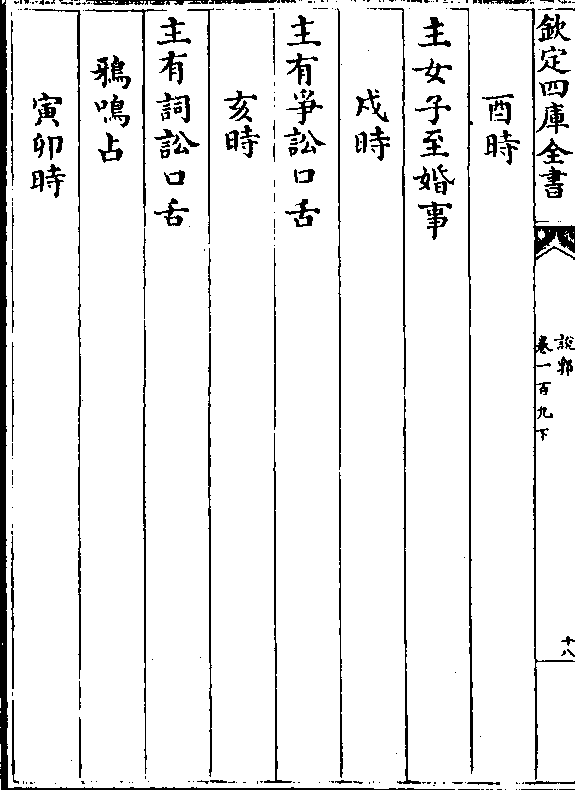 欽定四庫全書
說郛
卷一百九下
十八
酉時
主女子至婚事
戌時
主有爭訟口舌
亥時
主有詞訟口舌
鵶鳴占
寅卯時